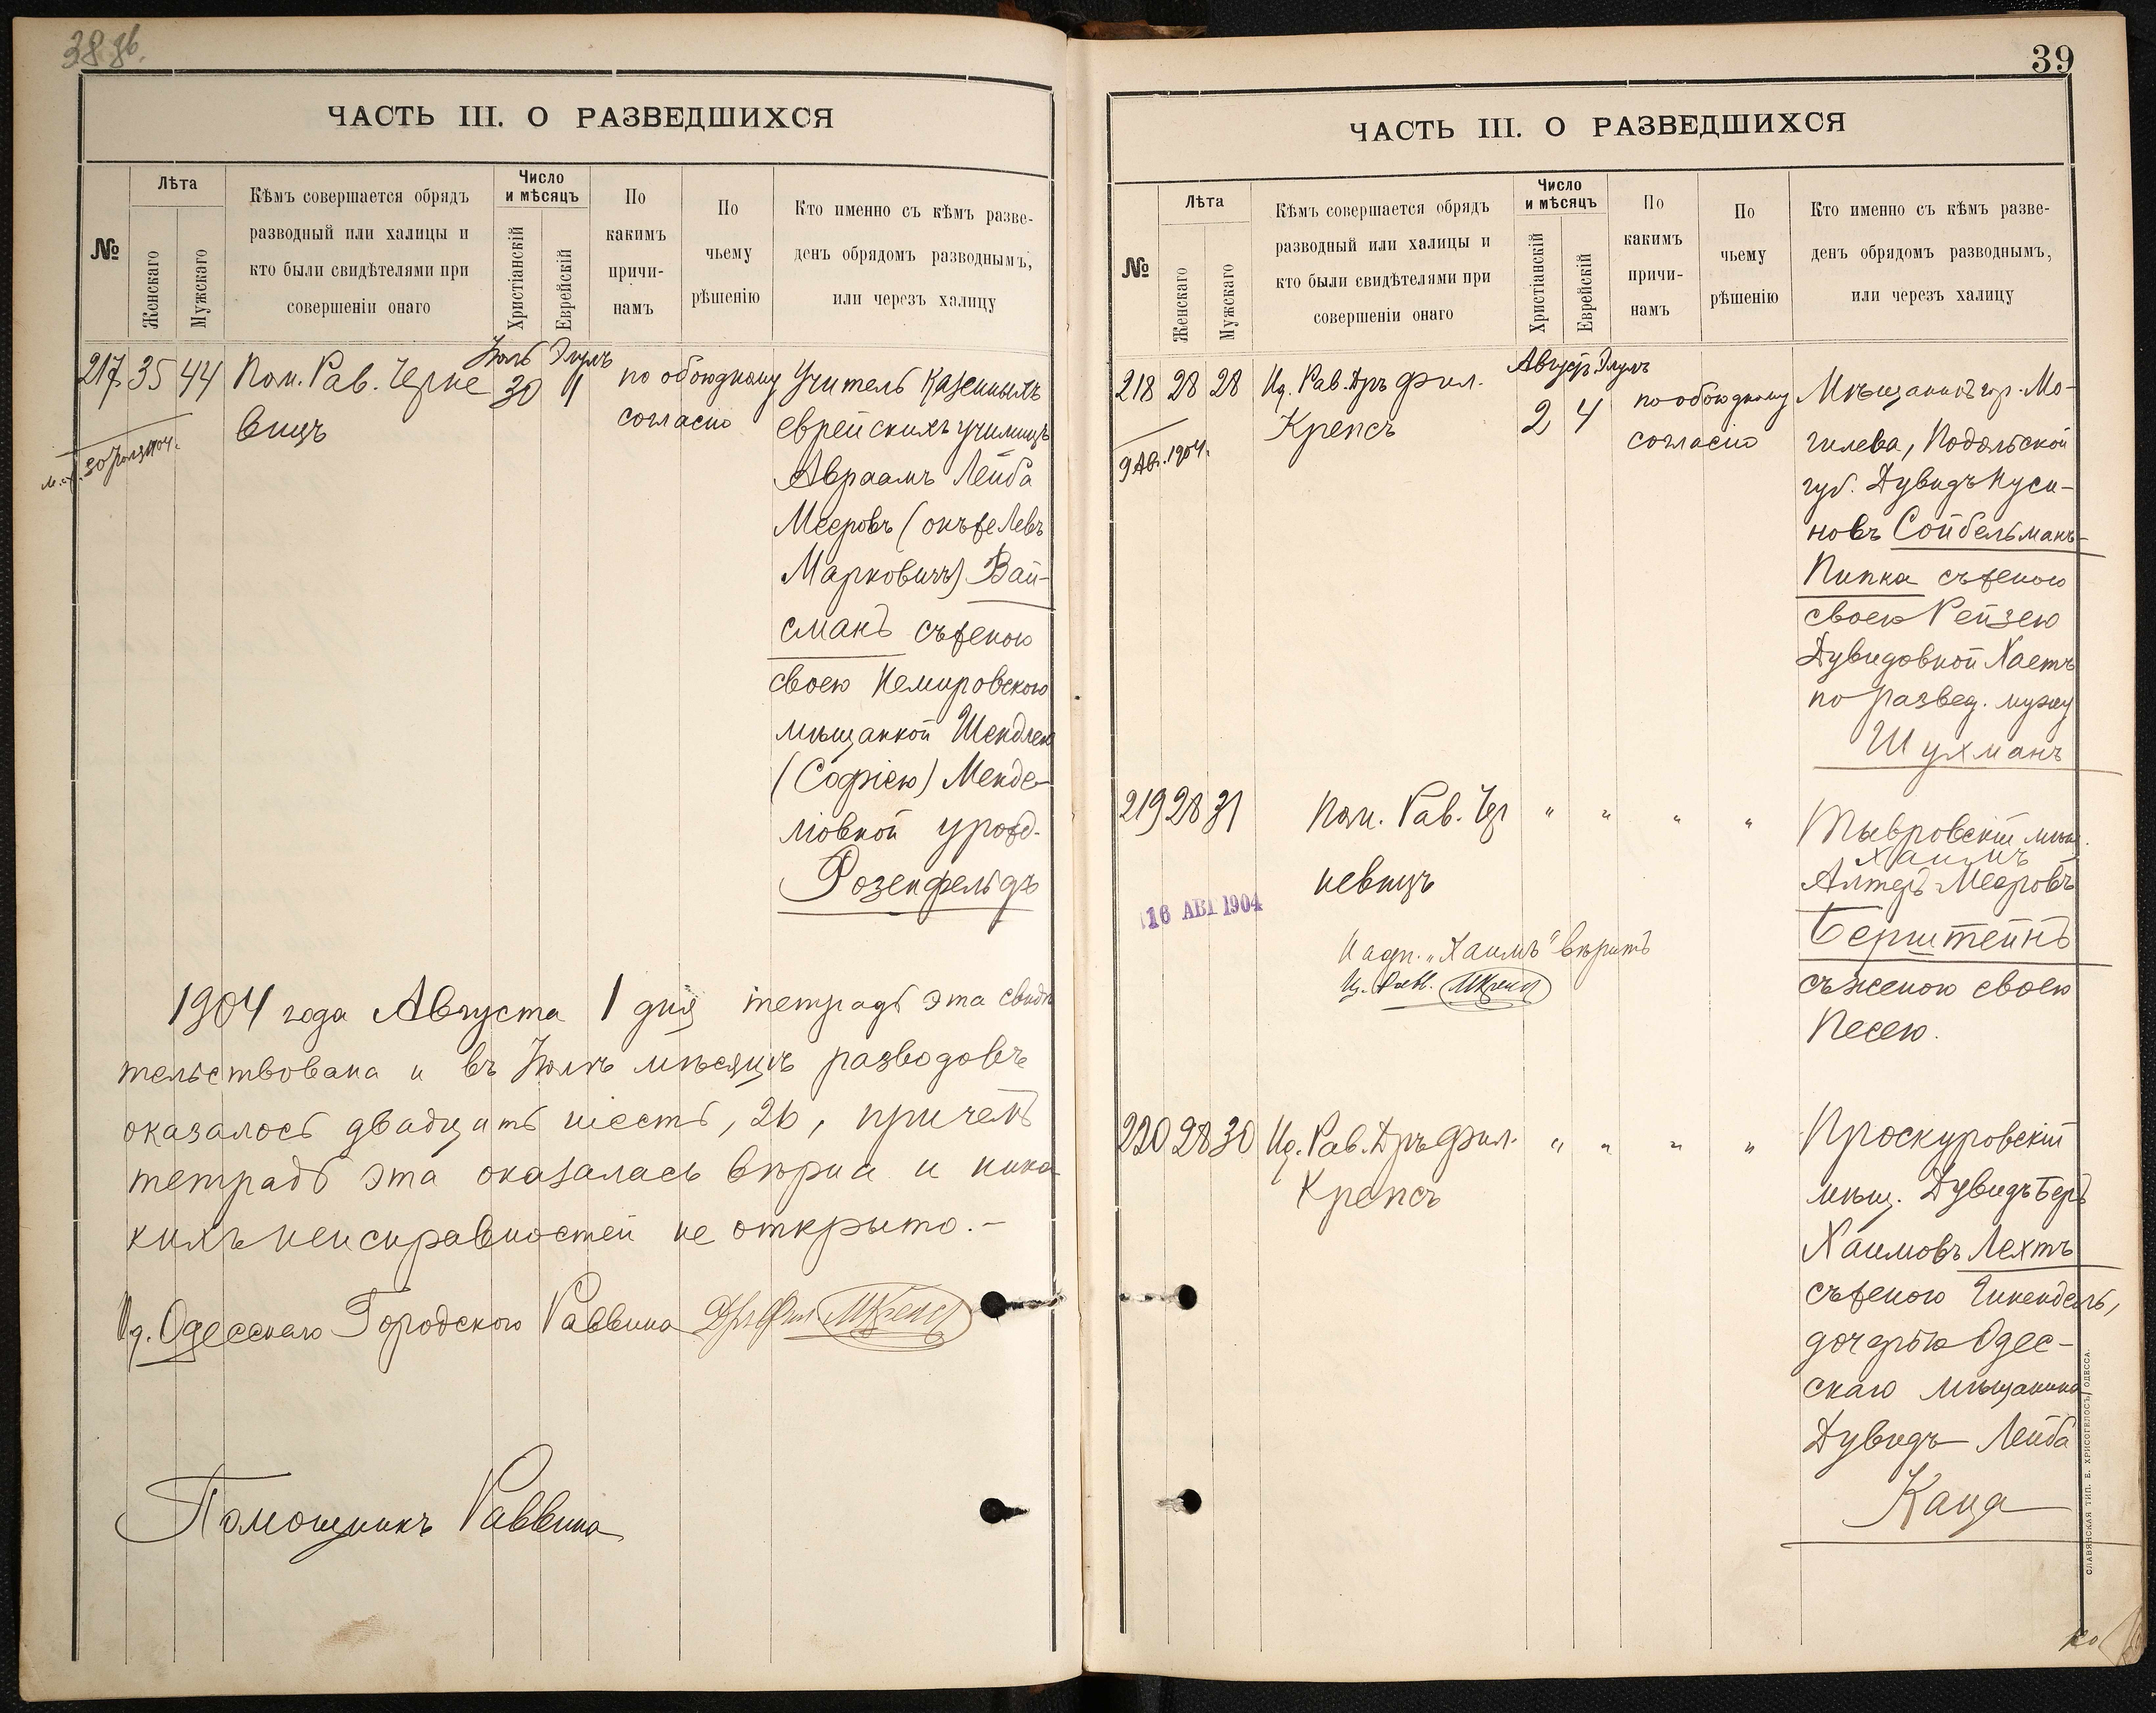 38 об.
ЧАСТЬ III. О РАЗВЕДШИХСЯ
№
Лѣта
Женскаго
Мужскаго
Кѣмъ совершается обрядъ
разводный или халицы и
кто были свидѣтелями при
совершеніи онаго
Число
и мѣсяцъ
Христіанскій
Еврейскій
По
какимъ
причи-
намъ
По
чьему
рѣшенію
Кто именно съ кѣмъ разве-
денъ обрядомъ разводнымъ,
или черезъ халицу
Іюль Элулъ
217 35 44 Пом. Рав. Черне 30 1 по обоюдному Учитель казенныхъ
вицъ согласію еврейскихъ училищъ
30 Іюля 1904.
Авраамъ Лейба
Мееровъ (онъ же Левъ
Марковичъ) Вай-
сманъ съ женою
своею Немировскою
мѣщанкой Шендлею
(Софіею) Менде-
ліовной урожд.
Розенфельдъ
1904 года Августа 1 дня тетрадь эта свидѣ
тельствована и въ Іюлѣ мѣсяцѣ разводовъ
оказалось двадцать шесть, 26, причемъ
тетрадь эта оказалась вѣрна и ника
кихъ неисправностей не открыто.-
Ид. Одесскаго Городского Раввина Дръ Фил МКрепсъ
Помощникъ Раввина
39
ЧАСТЬ III. О РАЗВЕДШИХСЯ
№
Лѣта
Женскаго
Мужскаго
Кѣмъ совершается обрядъ
разводный или халицы и
кто были свидѣтелями при
совершеніи онаго
Число
и мѣсяцъ
Христіанскій
Еврейскій
По
какимъ
причи-
намъ
По
чьему
рѣшенію
Кто именно съ кѣмъ разве-
денъ обрядомъ разводнымъ,
или черезъ халицу
Август. Элулъ
218 28 28 Ид. Рав. Дръ Фил. 2 4 по обоюдному Мѣщанинъ гор. Мо-
Крепсъ согласію гилева, Подольской
9 Авг. 1904.
губ. Дувидъ Нуси-
новъ Сойбельманъ-
Пипка съ женою
своею Рейзею
Дувидовной Хаетъ
по развед. мужу
Шухманъ
219 28 31 Пом. Рав. Чер " " " " Тывровскій мѣщ.
Хаимъ
невицъ Алтеръ Мееровъ
16 АВГ 1904
Берштейнъ
Надп. "Хаимъ" вѣрить
Ид. Равв. МКрепсъ
съ женою своею
Песею.
220 28 30 Ид. Рав. Дръ Фил. " " " " Проскуровскій
Крепсъ мѣщ. Дувидъ Беръ
Хаимовъ Лехтъ
съ женою Гинендель,
дочерью Одес-
скаго мѣщанина
Дувидъ-Лейба
Каца
СЛАВЯНСКАЯ ТИП. Е. ХРИСОГЕЛОСЪ, ОДЕССА.